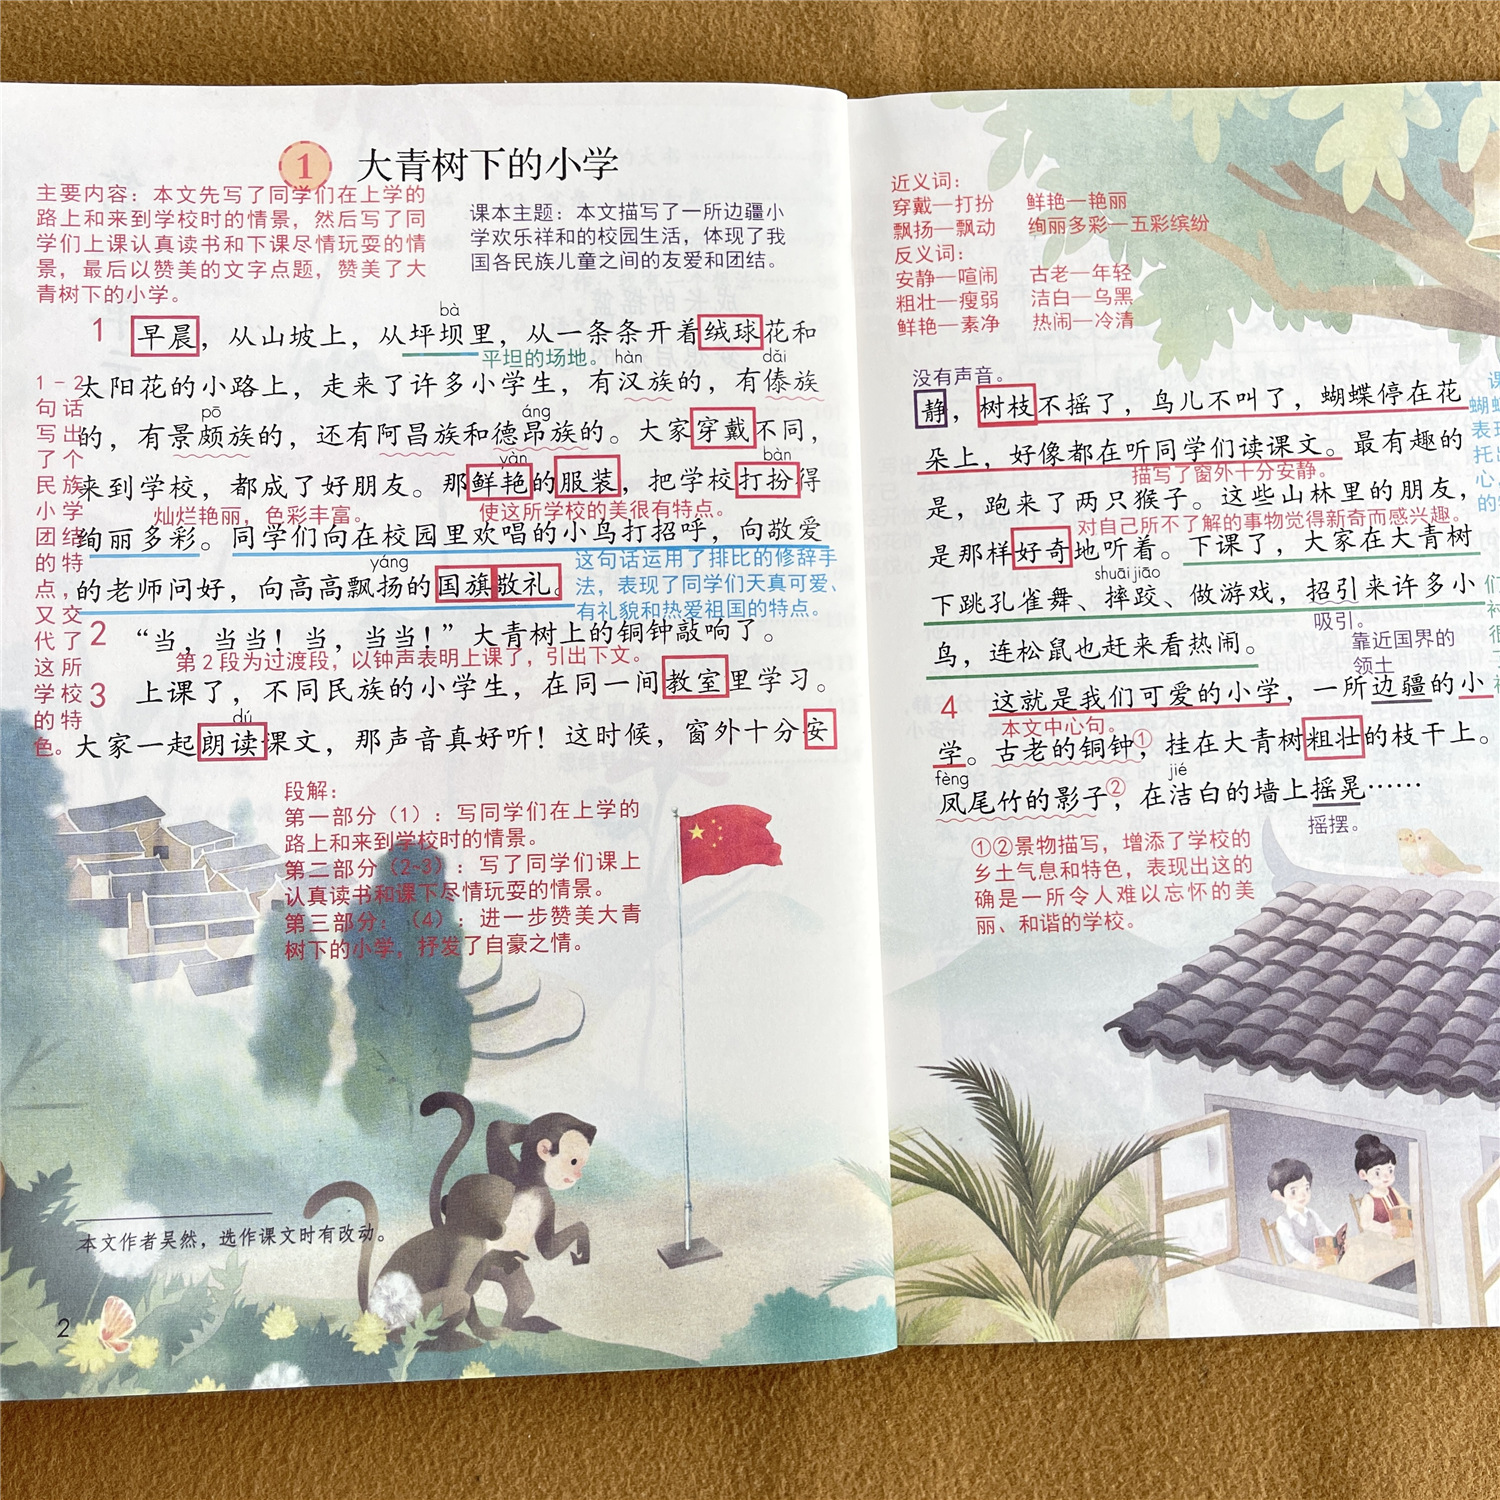 1 大青树下的小学
主要内容：本文先写了同学们在上学的
路上和来到学校时的情景，然后写了同
学们上课认真读书和下课尽情玩耍的情
景，最后以赞美的文字点题，赞美了大
青树下的小学。
课本主题：本文描写了一所边疆小
学欢乐祥和的校园生活，体现了我
国各民族儿童之间的友爱和团结。
bà
1 早晨，从山坡上，从坪坝里，从一条条开着绒球花和
平坦的场地。
hàn dǎi
太阳花的小路上，走来了许多小学生，有汉族的，有傣族
pō áng
的，有景颇族的，还有阿昌族和德昂族的。大家穿戴不同，
yàn bàn
来到学校，都成了好朋友。那鲜艳的服装，把学校打扮得
灿烂艳丽，色彩丰富。
使这所学校的美很有特点。
绚丽多彩。同学们向在校园里欢唱的小鸟打招呼，向敬爱
yáng
的老师问好，向高高飘扬的国旗敬礼。
这句话运用了排比的修辞手
法，表现了同学们天真可爱、
有礼貌和热爱祖国的特点。
2 “当，当当！当，当当！”大青树上的铜钟敲响了。
第2段为过渡段，以钟声表明上课了，引出下文。
3 上课了，不同民族的小学生，在同一间教室里学习。
dú
大家一起朗读课文，那声音真好听！这时候，窗外十分安
1-2
句话
写出
了个
民族
小学
团结
的特
点，
又交
代了
这所
学校
的特
色。
段解：
第一部分（1）：写同学们在上学的
路上和来到学校时的情景。
第二部分（2-3）：写了同学们课上
认真读书和课下尽情玩耍的情景。
第三部分：（4）：进一步赞美大青
树下的小学，抒发了自豪之情。
本文作者吴然，选作课文时有改动。
2
近义词：
穿戴—打扮 鲜艳—艳丽
飘扬—飘动 绚丽多彩—五彩缤纷
反义词：
安静—喧闹 古老—年轻
粗壮—瘦弱 洁白—乌黑
鲜艳—素净 热闹—冷清
没有声音。
静，树枝不摇了，鸟儿不叫了，蝴蝶停在花
朵上，好像都在听同学们读课文。最有趣的
描写了窗外十分安静。
是，跑来了两只猴子。这些山林里的朋友，
对自己所不了解的事物觉得新奇而感兴趣。
是那样好奇地听着。下课了，大家在大青树
shuāi jiāo
下跳孔雀舞、摔跤、做游戏，招引来许多小
吸引。
鸟，连松鼠也赶来看热闹。
靠近国界的
领土
4 这就是我们可爱的小学，一所边疆的小
本文中心句。
学。古老的铜钟①，挂在大青树粗壮的枝干上。
fèng jié
凤尾竹的影子②，在洁白的墙上摇晃……
摇摆。
①②景物描写，增添了学校的
乡土气息和特色，表现出这的
确是一所令人难以忘怀的美
丽、和谐的学校。